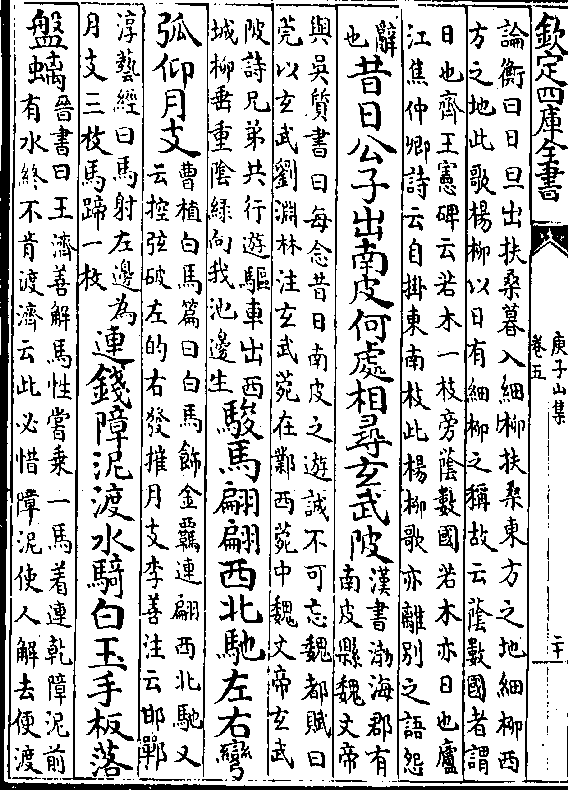 欽定四庫全書
庾子山集
卷五
二十
論衡曰日旦出扶桑暮入細柳扶桑東方之地細柳西
方之地此歌楊柳以日有細柳之稱故云蔭數國者謂
日也齊王憲碑云若木一枝旁蔭數國若木亦日也廬
江焦仲卿詩云自掛東南枝此楊柳歌亦離別之語怨
辭
也
昔日公子出南皮何處相尋玄武陂
漢書渤海郡有
南皮縣魏文帝
與吳質書曰每念昔日南皮之遊誠不可忘魏都賦曰
菀以玄武劉淵林注玄武菀在鄴西菀中魏文帝玄武
陂詩兄弟共行遊驅車出西
城柳垂重陰綠向我池邊生
駿馬翩翩西北馳左右彎
弧仰月支
曹植白馬篇曰白馬飾金羈連翩西北馳又
云控弦破左的右發摧月支李善注云邯鄲
淳藝經曰馬射左邊為
月支三枚馬蹄一枚
連錢障泥渡水騎白玉手板落
盤蜹
晉書曰王濟善解馬性嘗乗一馬着連乾障泥前
有水終不肯渡濟云此必惜障泥使人解去便渡